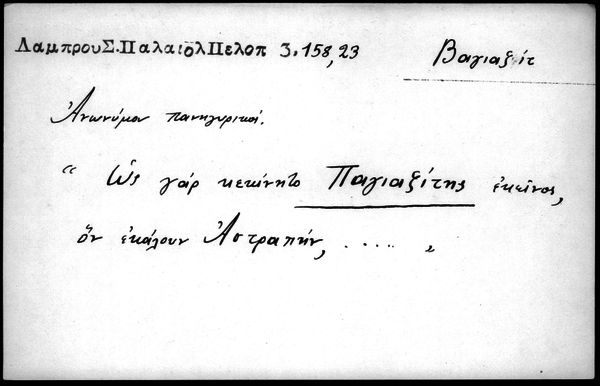 ΛαμπρουΣ.ΠαλαιολΠελοπ 3.158,23
Βαγιαζίτ
Ἀνωνύμου πανηγυρικοί.
“ Ὡς γάρ κεκίνητο Παγιαζίτης ἐκεῖνος,
ὅν ἐκάλουν Ἀστραπήν, ..... „